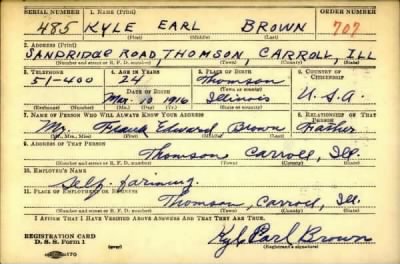 SERIAL NUMBER 1. NAME (Print) ORDER NUMBER
485 KYLE EARL BROWN 707
(First) (Middle) (Last)
2. ADDRESS (Print)
SANDRIDGE ROAD, THOMSON, CARROLL, ILL
(Number and street or R. F. D. number) (Town) (County) (State)
3. TELEPHONE 4. AGE IN YEARS 5. PLACE OF BIRTH 6. COUNTRY OF CITIZENSHIP
51-400 24 Thomson
DATE OF BIRTH (Town or county)
Mar. 10 1916 Illinois U.S.A.
(Exchange) (Number) (Mo.) (Day) (Yr.) (State or country)
7. NAME OF PERSON WHO WILL ALWAYS KNOW YOUR ADDRESS 8. RELATIONSHIP OF THAT PERSON
Mr. Frank Edward Brown Father
(Mr., Mrs., Miss) (First) (Middle) (Last)
9. ADDRESS OF THAT PERSON
Thomson Carroll, Ill.
(Number and street or R. F. D. number) (Town) (County) (State)
10. EMPLOYER'S NAME
Self. farming.
11. PLACE OF EMPLOYMENT OR BUSINESS
Thomson, Carroll, Ill.
(Number and street or R. F. D. number) (Town) (County) (State)
I AFFIRM THAT I HAVE VERIFIED ABOVE ANSWERS AND THAT THEY ARE TRUE.
REGISTRATION CARD
D. S. S. Form 1
Kyle Earl Brown
(Registrant's signature)